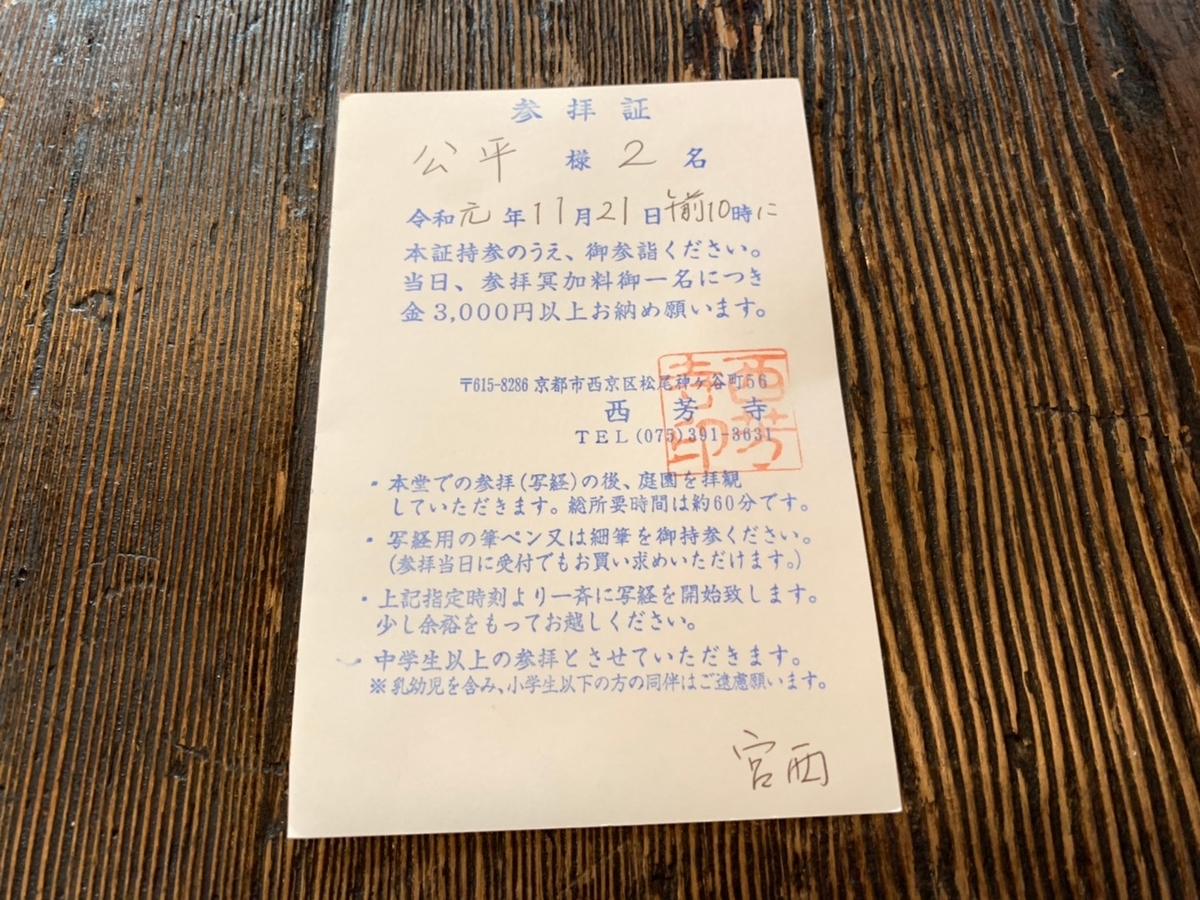 参拝証
公平 様 2 名
令和元年11月21日午前10時に
本証持参のうえ、御参詣ください。
当日、参拝冥加料御一名につき
金3,000円以上お納め願います。
〒615-8286 京都市西京区松尾神ヶ谷町56
西芳寺
TEL(075)391-3631
西芳寺印
・本堂での参拝(写経)の後、庭園を拝観
していただきます。総所要時間は約60分です。
・写経用の筆ペン又は細筆を御持参ください。
(参拝当日に受付でもお買い求めいただけます。)
・上記指定時刻より一斉に写経を開始致します。
少し余裕をもってお越しください。
・中学生以上の参拝とさせていただきます。
※乳幼児を含み、小学生以下の方の同伴はご遠慮願います。
宮西